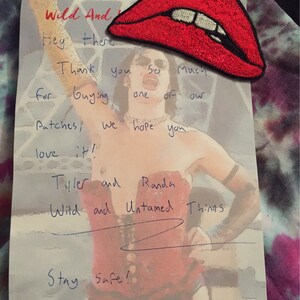 Wild And
Hey there
Thank you so much
for buying one of our
patches; we hope you
love it!
Tyler and Randa
Wild and Untamed Things
Stay Safe!